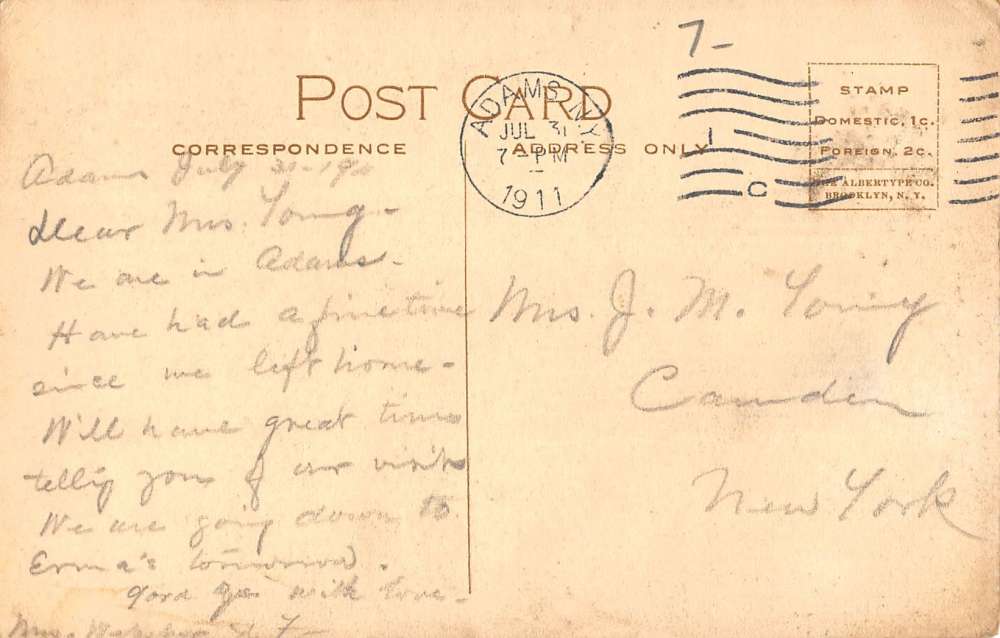 7-
POST CARD
CORRESPONDENCE
ADDRESS ONLY
ADAMS N.Y.
JUL 31
7-PM
1911
1
C
STAMP
DOMESTIC, 1c.
FOREIGN, 2c.
THE ALBERTYPE CO.
BROOKLYN, N. Y.
Adams July 31-19
Dear Mrs. Young-
We are in Adams-
Have had a fine time
since we left home-
Will have great times
tellig you of our visits
We are going down to
Erma's tomorrow.
with love-
Mrs.
Mrs. J. M. Young
Camden
New York